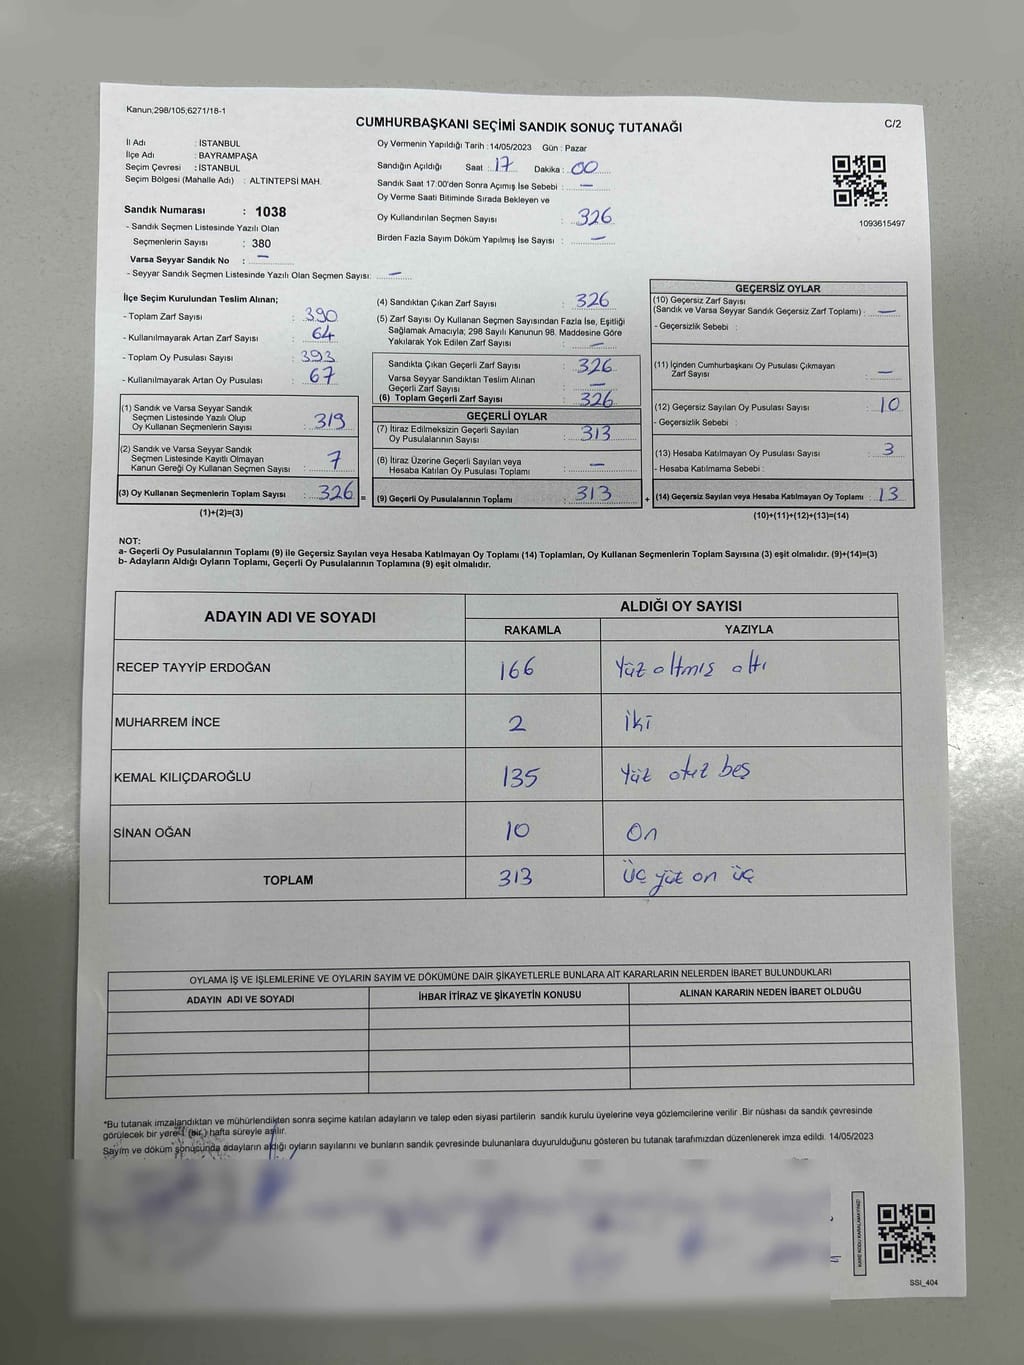 Kanun;298/105;6271/18-1
CUMHURBAŞKANI SEÇİMİ SANDIK SONUÇ TUTANAĞI
C/2
İl Adı : İSTANBUL
İlçe Adı : BAYRAMPAŞA
Seçim Çevresi : İSTANBUL
Seçim Bölgesi (Mahalle Adı) : ALTINTEPSİ MAH.
Sandık Numarası : 1038
- Sandık Seçmen Listesinde Yazılı Olan
Seçmenlerin Sayısı : 380
Varsa Seyyar Sandık No : —
- Seyyar Sandık Seçmen Listesinde Yazılı Olan Seçmen Sayısı: —
Oy Vermenin Yapıldığı Tarih : 14/05/2023 Gün : Pazar
Sandığın Açıldığı Saat : 17 Dakika : 00
Sandık Saat 17:00'den Sonra Açımış İse Sebebi : —
Oy Verme Saati Bitiminde Sırada Bekleyen ve
Oy Kullandırılan Seçmen Sayısı : 326
Birden Fazla Sayım Döküm Yapılmış İse Sayısı : —
1093615497
İlçe Seçim Kurulundan Teslim Alınan;
- Toplam Zarf Sayısı : 390
- Kullanılmayarak Artan Zarf Sayısı : 64
- Toplam Oy Pusulası Sayısı : 393
- Kullanılmayarak Artan Oy Pusulası : 67
(1) Sandık ve Varsa Seyyar Sandık
Seçmen Listesinde Yazılı Olup
Oy Kullanan Seçmenlerin Sayısı : 319
(2) Sandık ve Varsa Seyyar Sandık
Seçmen Listesinde Kayıtlı Olmayan
Kanun Gereği Oy Kullanan Seçmen Sayısı : 7
(3) Oy Kullanan Seçmenlerin Toplam Sayısı : 326 =
(1)+(2)=(3)
(4) Sandıktan Çıkan Zarf Sayısı : 326
(5) Zarf Sayısı Oy Kullanan Seçmen Sayısından Fazla İse, Eşitliği
Sağlamak Amacıyla; 298 Sayılı Kanunun 98. Maddesine Göre
Yakılarak Yok Edilen Zarf Sayısı : —
Sandıkta Çıkan Geçerli Zarf Sayısı : 326
Varsa Seyyar Sandıktan Teslim Alınan
Geçerli Zarf Sayısı : —
(6) Toplam Geçerli Zarf Sayısı : 326
GEÇERLİ OYLAR
(7) İtiraz Edilmeksizin Geçerli Sayılan
Oy Pusulalarının Sayısı : 313
(8) İtiraz Üzerine Geçerli Sayılan veya
Hesaba Katılan Oy Pusulası Toplamı : —
(9) Geçerli Oy Pusulalarının Toplamı : 313 +
GEÇERSİZ OYLAR
(10) Geçersiz Zarf Sayısı
(Sandık ve Varsa Seyyar Sandık Geçersiz Zarf Toplamı) : —
- Geçersizlik Sebebi :
(11) İçinden Cumhurbaşkanı Oy Pusulası Çıkmayan
Zarf Sayısı : —
(12) Geçersiz Sayılan Oy Pusulası Sayısı : 10
- Geçersizlik Sebebi :
(13) Hesaba Katılmayan Oy Pusulası Sayısı : 3
- Hesaba Katılmama Sebebi :
(14) Geçersiz Sayılan veya Hesaba Katılmayan Oy Toplamı : 13
(10)+(11)+(12)+(13)=(14)
NOT:
a- Geçerli Oy Pusulalarının Toplamı (9) ile Geçersiz Sayılan veya Hesaba Katılmayan Oy Toplamı (14) Toplamları, Oy Kullanan Seçmenlerin Toplam Sayısına (3) eşit olmalıdır. (9)+(14)=(3)
b- Adayların Aldığı Oyların Toplamı, Geçerli Oy Pusulalarının Toplamına (9) eşit olmalıdır.
ADAYIN ADI VE SOYADI ALDIĞI OY SAYISI
RAKAMLA YAZIYLA
RECEP TAYYİP ERDOĞAN 166 Yüz altmış altı
MUHARREM İNCE 2 İki
KEMAL KILIÇDAROĞLU 135 Yüz otuz beş
SİNAN OĞAN 10 On
TOPLAM 313 Üç yüz on üç
OYLAMA İŞ VE İŞLEMLERİNE VE OYLARIN SAYIM VE DÖKÜMÜNE DAİR ŞİKAYETLERLE BUNLARA AİT KARARLARIN NELERDEN İBARET BULUNDUKLARI
ADAYIN ADI VE SOYADI İHBAR İTİRAZ VE ŞİKAYETİN KONUSU ALINAN KARARIN NEDEN İBARET OLDUĞU
*Bu tutanak imzalandıktan ve mühürlendikten sonra seçime katılan adayların ve talep eden siyasi partilerin sandık kurulu üyelerine veya gözlemcilerine verilir .Bir nüshası da sandık çevresinde
görülecek bir yere 1 (bir ) hafta süreyle asılır.
Sayım ve döküm sonucunda adayların aldığı oyların sayılarını ve bunların sandık çevresinde bulunanlara duyurulduğunu gösteren bu tutanak tarafımızdan düzenlenerek imza edildi. 14/05/2023
KARE KODU KARALAMAYINIZ!
SSI_404